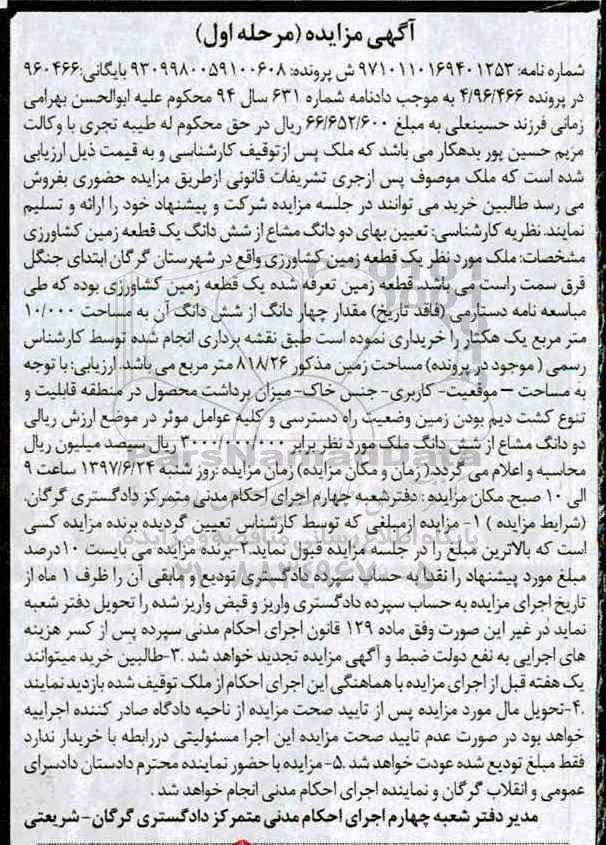 آگهی مزایده (مرحله اول)
شماره نامه: ۹۷۱۰۱۱۰۱۶۹۴۰۱۲۵۳ ش پرونده: ۹۳۰۹۹۸۰۰۵۹۱۰۰۶۰۸ بایگانی:۹۶۰۴۶۶
در پرونده ۴/۹۶/۴۶۶ به موجب دادنامه شماره ۶۳۱ سال ۹۴ محکوم علیه ابوالحسن بهرامی
زمانی فرزند حسینعلی به مبلغ ۶۶/۶۵۲/۶۰۰ ریال در حق محکوم له طیبه تجری با وکالت
مریم حسین پور بدهکار می باشد که ملک پس ازتوقیف کارشناسی و به قیمت ذیل ارزیابی
شده است که ملک موصوف پس ازجری تشریفات قانونی ازطریق مزایده حضوری بفروش
می رسد طالبین خرید می توانند در جلسه مزایده شرکت و پیشنهاد خود را ارائه و تسلیم
نمایند. نظریه کارشناسی: تعیین بهای دو دانگ مشاع از شش دانگ یک قطعه زمین کشاورزی
مشخصات: ملک مورد نظر یک قطعه زمین کشاورزی واقع در شهرستان گرگان ابتدای جنگل
قرق سمت راست می باشد. قطعه زمین تعرفه شده یک قطعه زمین کشاورزی بوده که طی
مبایعه نامه دستارمی (فاقد تاریخ) مقدار چهار دانگ از شش دانگ آن به مساحت ۱۰/۰۰۰
متر مربع یک هکتار را خریداری نموده است طبق نقشه برداری انجام شده توسط کارشناس
رسمی ( موجود در پرونده) مساحت زمین مذکور ۸۱۸/۲۶ متر مربع می باشد. ارزیابی: با توجه
به مساحت – موقعیت- کاربری- جنس خاک- میزان برداشت محصول در منطقه قابلیت و
تنوع کشت دیم بودن زمین وضعیت راه دسترسی و کلیه عوامل موثر در موضع ارزش ریالی
دو دانگ مشاع از شش دانگ ملک مورد نظر برابر ۳۰۰۰/۰۰۰/۰۰۰ ریال سیصد میلیون ریال
محاسبه و اعلام می گردد.( زمان و مکان مزایده) زمان مزایده :روز شنبه ۱۳۹۷/۶/۲۴ ساعت ۹
الی ۱۰ صبح. مکان مزایده : دفترشعبه چهارم اجرای احکام مدنی متمرکز دادگستری گرگان.
(شرایط مزایده ) ۱- مزایده ازمبلغی که توسط کارشناس تعیین گردیده برنده مزایده کسی
است که بالاترین مبلغ را در جلسه مزایده قبول نماید.۲-برنده مزایده می بایست ۱۰درصد
مبلغ مورد پیشنهاد را نقدا به حساب سپرده دادگستری تودیع و مابقی آن را ظرف ۱ ماه از
تاریخ اجرای مزایده به حساب سپرده دادگستری واریز و قبض واریز شده را تحویل دفتر شعبه
نماید در غیر این صورت وفق ماده ۱۲۹ قانون اجرای احکام مدنی سپرده پس از کسر هزینه
های اجرایی به نفع دولت ضبط و آگهی مزایده تجدید خواهد شد .۳-طالبین خرید میتوانند
یک هفته قبل از اجرای مزایده با هماهنگی این اجرای احکام از ملک توقیف شده بازدید نمایند
.۴-تحویل مال مورد مزایده پس از تایید صحت مزایده از ناحیه دادگاه صادر کننده اجراییه
خواهد بود در صورت عدم تایید صحت مزایده این اجرا مسئولیتی دررابطه با خریدار ندارد
فقط مبلغ تودیع شده عودت خواهد شد .۵- مزایده با حضور نماینده محترم دادستان دادسرای
عمومی و انقلاب گرگان و نماینده اجرای احکام مدنی انجام خواهد شد .
مدیر دفتر شعبه چهارم اجرای احکام مدنی متمرکز دادگستری گرگان- شریعتی